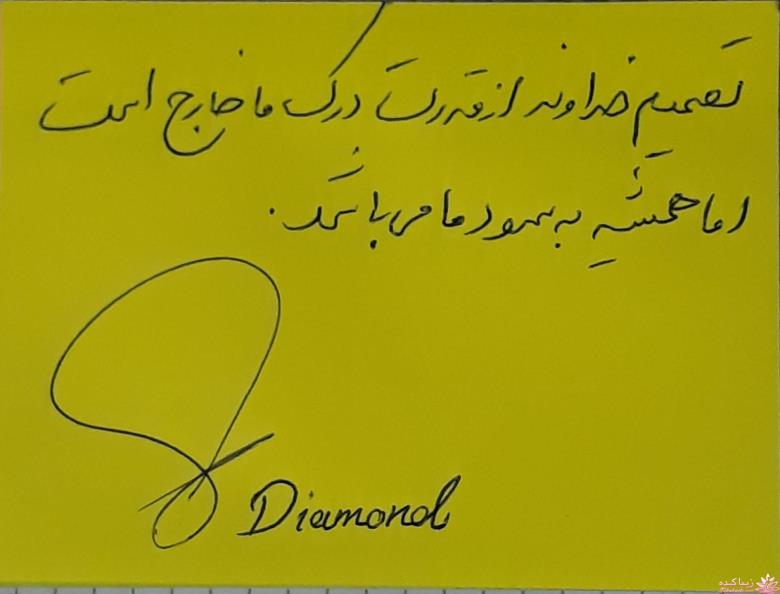 تصمیم خداوند از قدرت درک ما خارج است
اما همیشه به سود ما می باشد.
Diamond
زیباکده